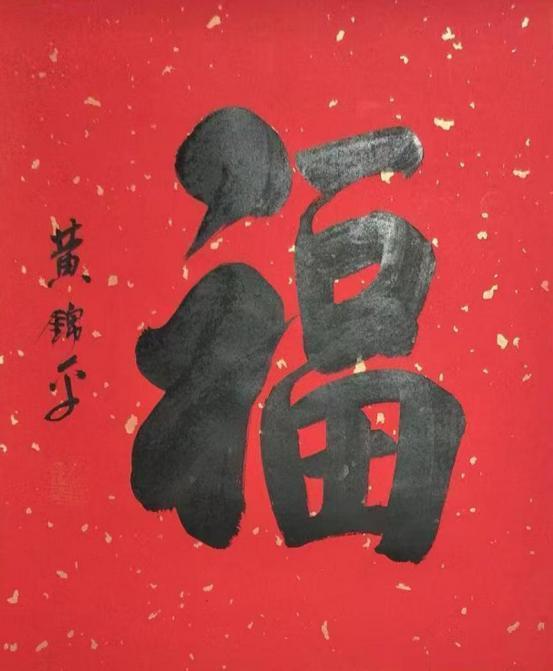 福
黄锦平